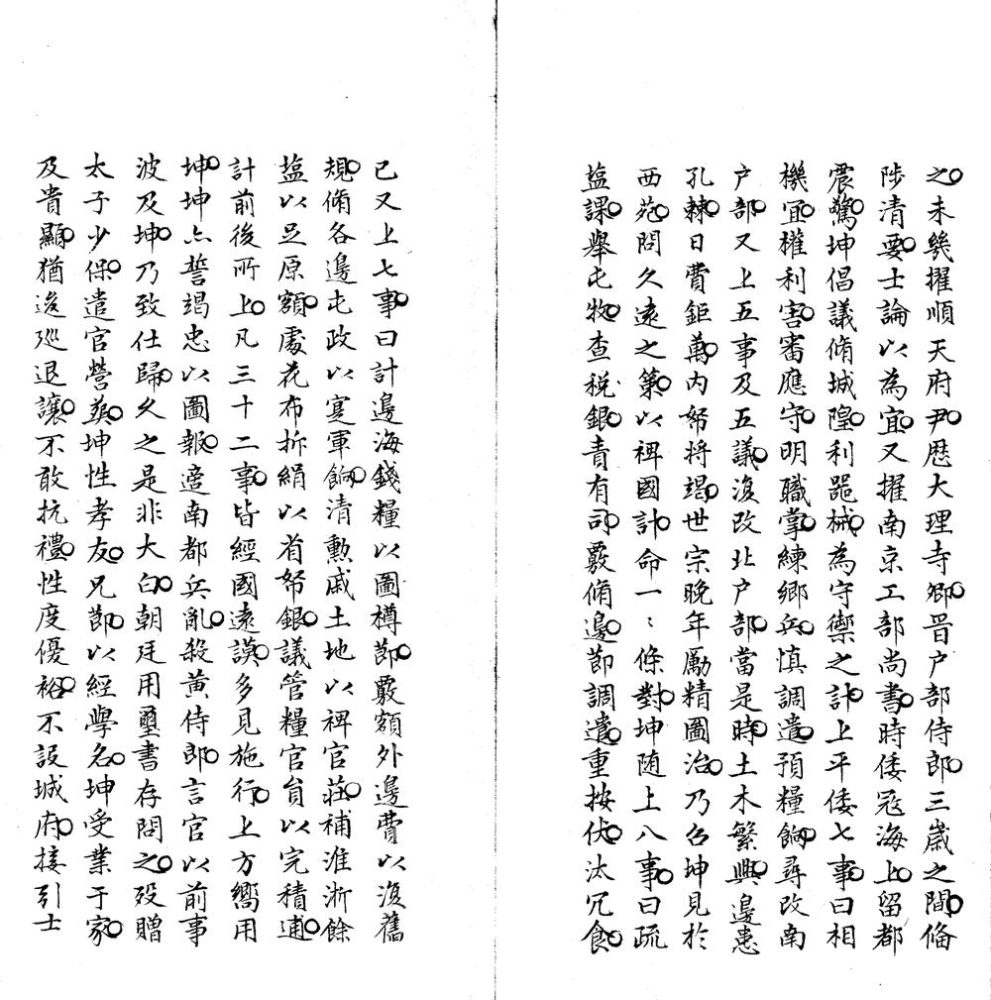 之未幾擢順天府尹歷大理寺卿晋户部侍郎三歲之間俻
陟清要士論以為宜又擢南京工部尚書時倭宼海上留都
震驚坤倡議脩城隍利噐械為守禦之計上平倭七事曰相
機宜權利害審應守明職掌練鄉兵慎調遣預糧餉尋改南
户部又上五事及五議復改北户部當是時土木繁興邊患
孔棘日費鉅萬内帑將竭世宗晚年勵精圖治乃召坤見於
西苑問久遠之策以裨國計命一〻條對坤随上八事曰疏
塩課舉屯牧查税銀責有司覈脩邊節調遣重按伏汰冗食
已又上七事曰計邊海錢糧以圖樽節覈額外邊費以復舊
規脩各邊屯政以寔軍餉清勳戚土地以裨官莊補淮浙餘
塩以足原額處花布折絹以省帑銀議管糧官員以完積逋
計前後所上凡三十二事皆經國遠謨多見施行上方嚮用
坤坤亦誓竭忠以圖報適南都兵亂殺黄侍郎言官以前事
波及坤乃致仕歸久之是非大白朝廷用璽書存問之殁贈
太子少保遣官營葬坤性孝友兄節以經學名坤受業于家
及貴顯猶逡廵退讓不敢抗禮性度優裕不設城府接引士